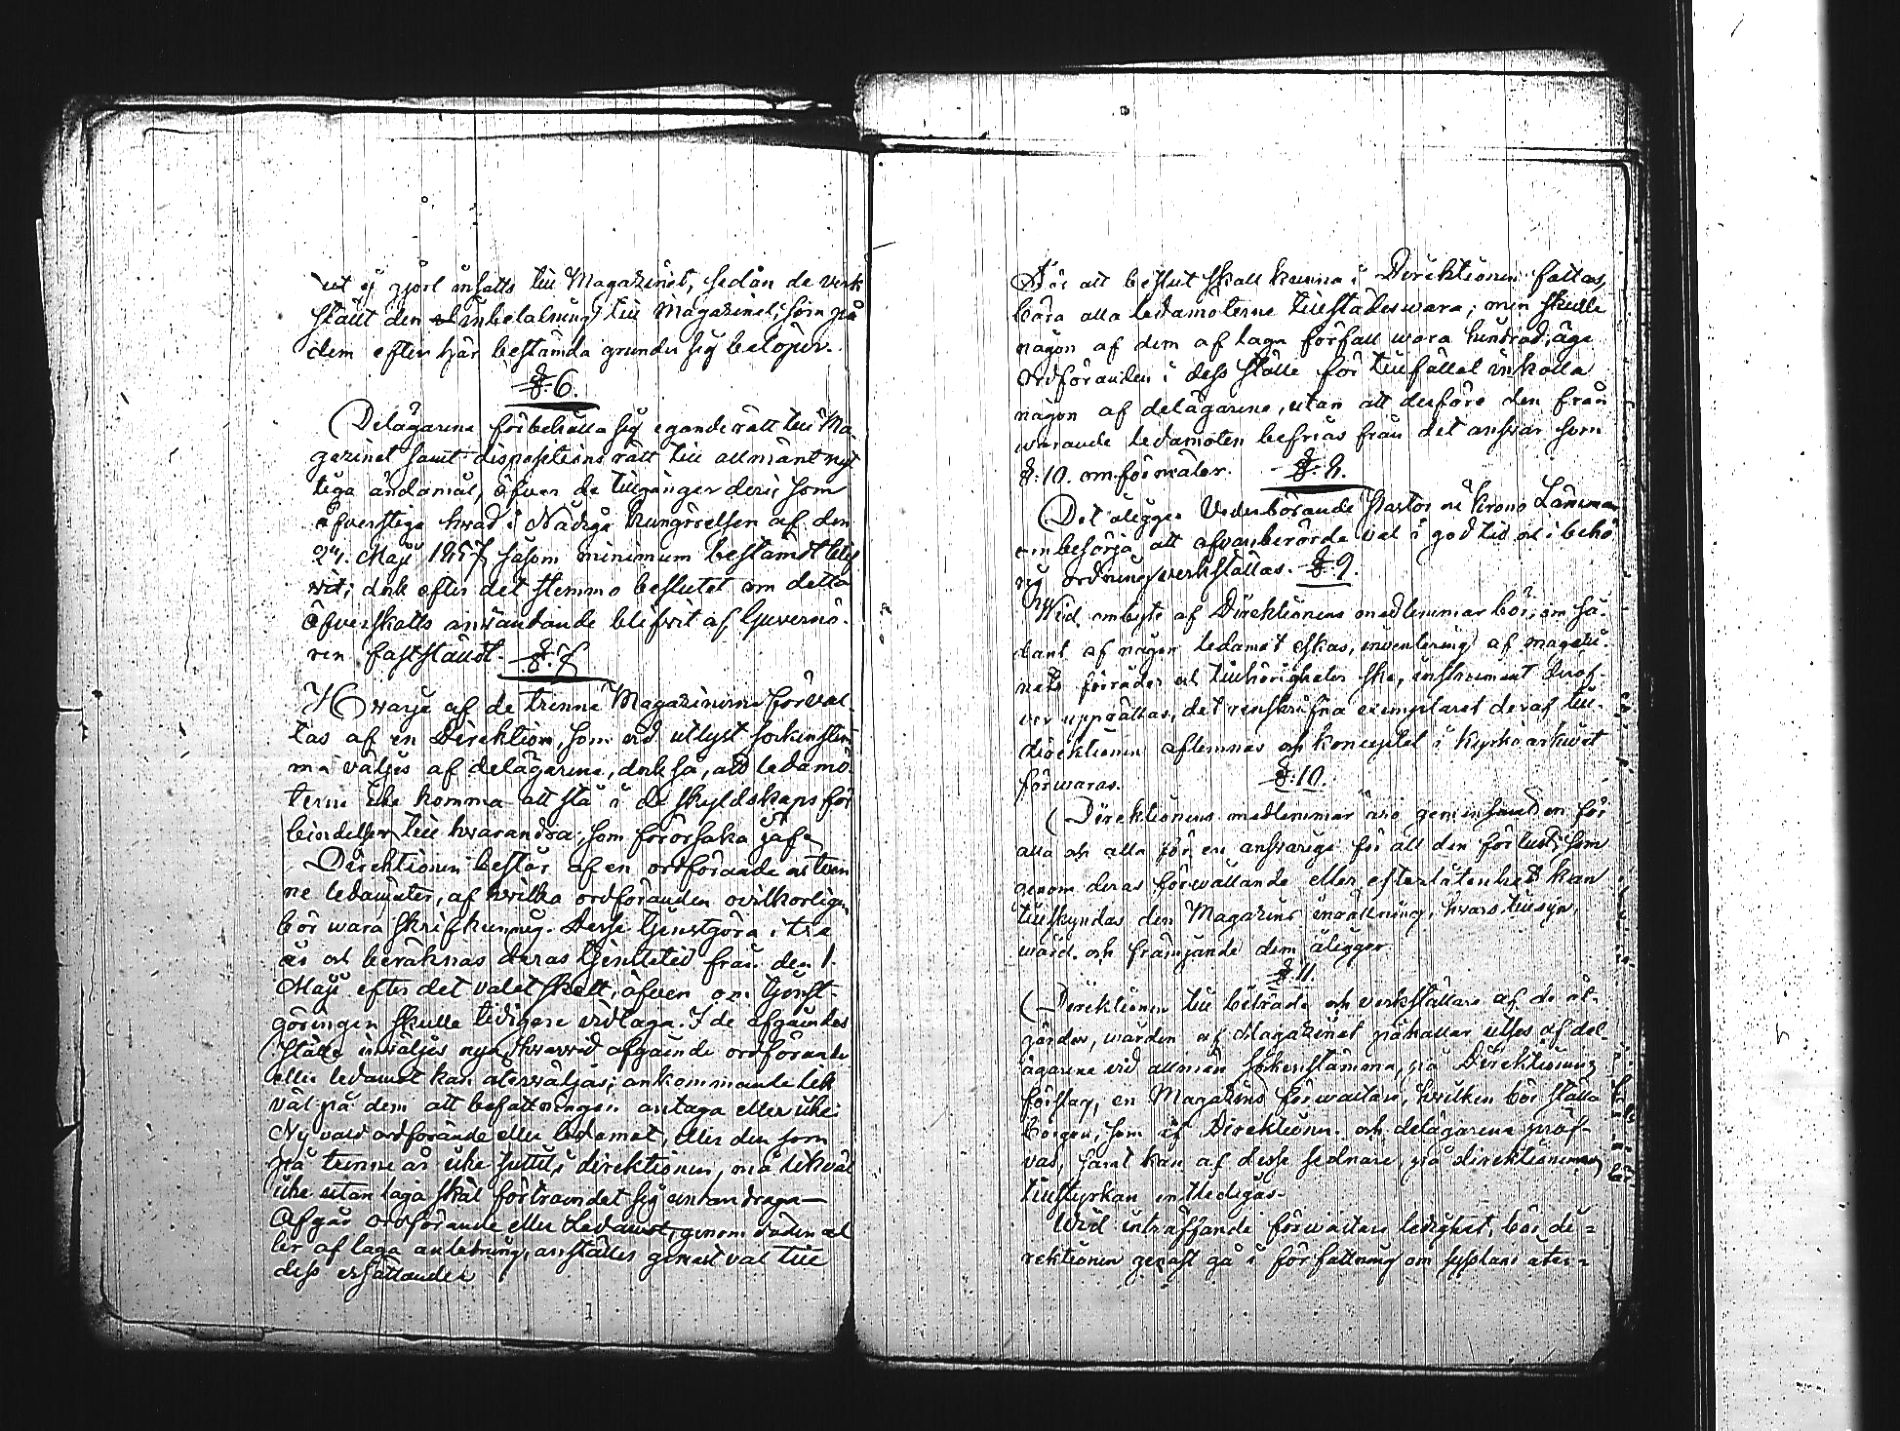 ut ej gjort insatts till Magazinet, sedan de verk
stält den inbetalning till Magazinet, som på
dem efter här bestämda grunder sig belöper.
§. 6.
Delägarena förbehålla sig eganderätt till Ma
gazinet samt dispositions rätt till allmänt nyt
tiga ändamål, öfver de tillgångar deri, som
öfverstiga hvad i Nådiga Kungörelsen af den
Maji 1857 såsom minimum bestämdt blif
vit; dock efter det stemmo beslutet om detta
öfverskotts användande blifvit af Guvernö-
ren faststäldt. §. 7
Hwarje af de trenne Magazinerne förval-
tas af en Direktion, som vid utlyst sockenstem
ma väljes af delägarena, dock så, att ledamö
terne icke komma att stå i de skyldskaps för
bindelser till hvarandra som förorsaka jäf.
Direktionen består af en ordförande och tven
ne ledamöter, af hvilka ordföranden ovilkorligen
bör wara skrifkunnig. Desse tjenstgöra i tre
år och beräknas deras tjenstetid från den 1.
Maji efter det valet skett, äfven om tjenst-
göringen skulle tidigare vidtaga. I de afgåendes
ställe inväljes nya hwarvid afgående ordförande
eller ledamot kan återväljas; ankommande lik
väl på dem att befattningen antaga eller icke
Ny vald ordförande eller ledamot, eller den som
på trenne år icke suttit i direktionen, må likväl
icke utan laga skäl förtroendet sig undandraga
Afgår ordförande eller Ledamot, genom döden el
ler af laga anledning, anställes genast val till
dess ersättande.
För att beslut skall kunna i Direktionen fattas,
böra alla ledamöterne tillstädeswara; men skulle
någon af dem af laga förfall wara hindrad, äge
Ordföranden i dess ställe för tillfället inkalla
någon af delägarene, utan att derföre den från
warande ledamoten befrias från det answar som
§. 10. omförmäler. §. 8.
Det åligger Vederbörande Pastor och Krono Länsman
ombesörja att ofvanberörde val i god tid och i behö
rig ordning verkställas. §. 9.
Wid ombyte af Direktionens medlemmar bör, om så-
dant af någon ledamot äskas, inventering af magazi-
nets förråder och tillhörigheter ske, instrument deröf-
ver upprättas, det renskrifna exemplaret deraf till
direktionen aflemnas och konceptet i Kyrko arkivet
förwaras. §. 10.
Direktionens medlemmar äro gemensamt en för
alla och alla för en answarige för all den förlust, som
genom deras förwållande eller efterlåtenhet kan
tillskyndas den Magazins inrättning, hvars tillsyn,
wård och främjande dem åligger.
§. 11.
Direktionen till biträde och verkställare af de åt-
gärder, wården af Magazinet påkallar utses af del-
ägarene vid allmän Sockenstämma, på Direktionens
förslag, en Magazins förwaltare, hwilken bör ställa
borgen, som af Direktionen och delägarena pröf-
vas, samt kan af desse sednare på direktionens
tillstyrkan entledigas.
Wid inträffande förwaltare ledighet, bör di-
rektionen genast gå i författning om sysslans åter-